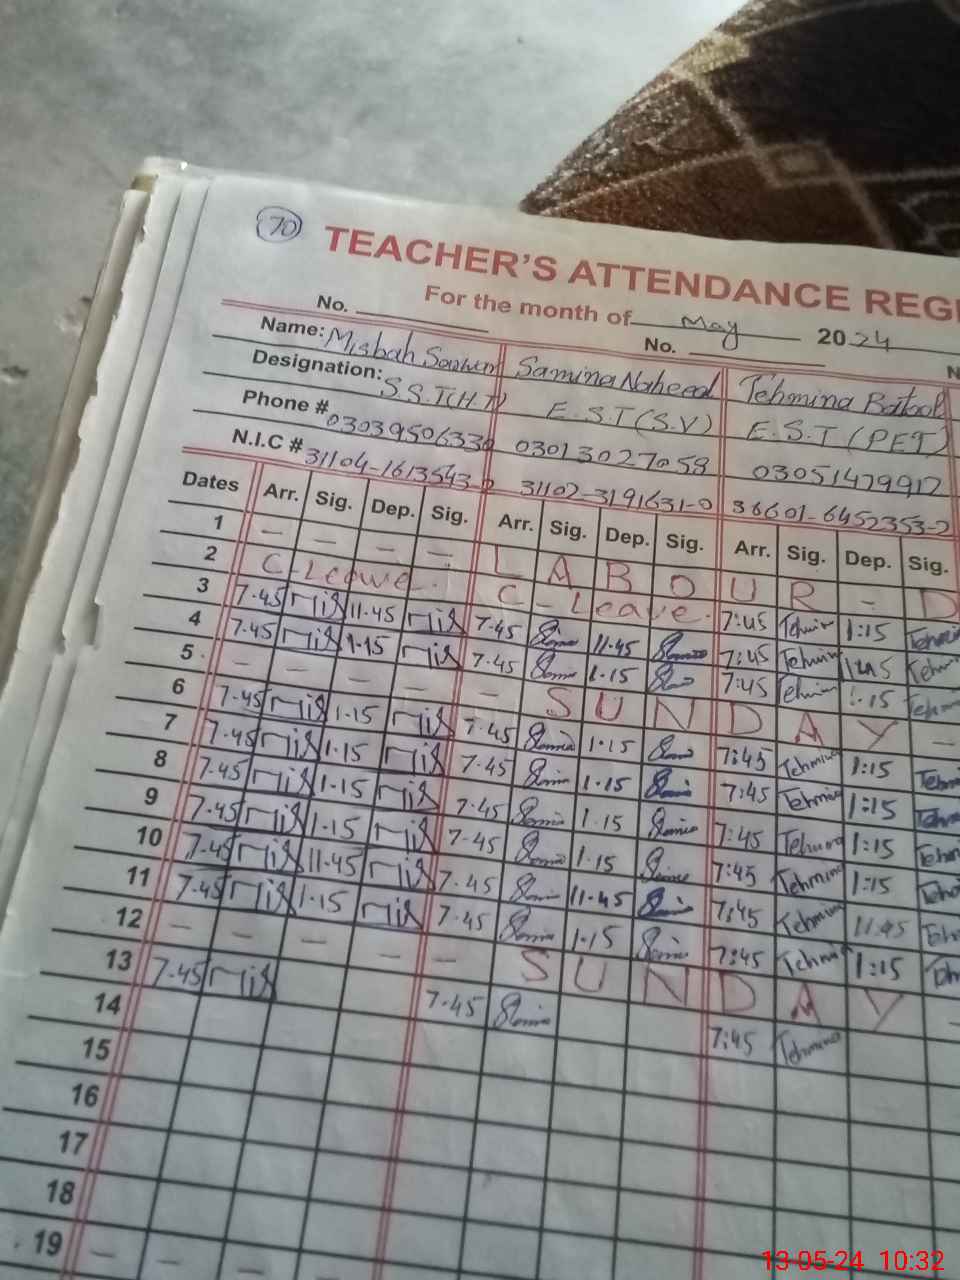 70
TEACHER'S ATTENDANCE REG
For the month of May 2024
No. No. N
Name: Misbah Samina Naheed Tehmina Batool
Designation: S.S.T(H.T) E.S.T(S.V) E.S.T (PET)
Phone # 0303950633 03013027058 03051479917
N.I.C # 31104-1613543- 31102-3191631-0 36601-6452353-2
Dates Arr. Sig. Dep. Sig. Arr. Sig. Dep. Sig. Arr. Sig. Dep. Sig.
1 - - - - L A B O U R - D
2 C-Leave. C-Leave. 7:45 Tehmina 1:15 Tehmina
3 7.45 mis 11.45 mis 7.45 Samina 11.45 Samina 7:45 Tehmina 11:45 Tehmina
4 7.45 mis 1.15 mis 7.45 Samina 1.15 Samina 7:45 Tehmina 1:15 Tehmina
5 - - - - - S U N D A Y -
6 7.45 mis 1.15 mis 7.45 Samina 1.15 Samina 7:45 Tehmina 1:15 Tehm
7 7.45 mis 1.15 mis 7.45 Samina 1.15 Samina 7:45 Tehmina 1:15 Tehm
8 7.45 mis 1.15 mis 7.45 Samina 1.15 Samina 7:45 Tehmina 1:15 Tehm
9 7.45 mis 1.15 mis 7.45 Samina 1.15 Samina 7:45 Tehmina 1:15 Teh
10 7.45 mis 11.45 mis 7.45 Samina 11.45 Samina 7:45 Tehmina 11:45 Teh
11 7.45 mis 1.15 mis 7.45 Samina 1.15 Samina 7:45 Tehmina 1:15 Teh
12 - - - - - S U N D A Y -
13 7.45 mis 7.45 Samina 7:45 Tehmina
14
15
16
17
18
19 -
13-05-24 10:32